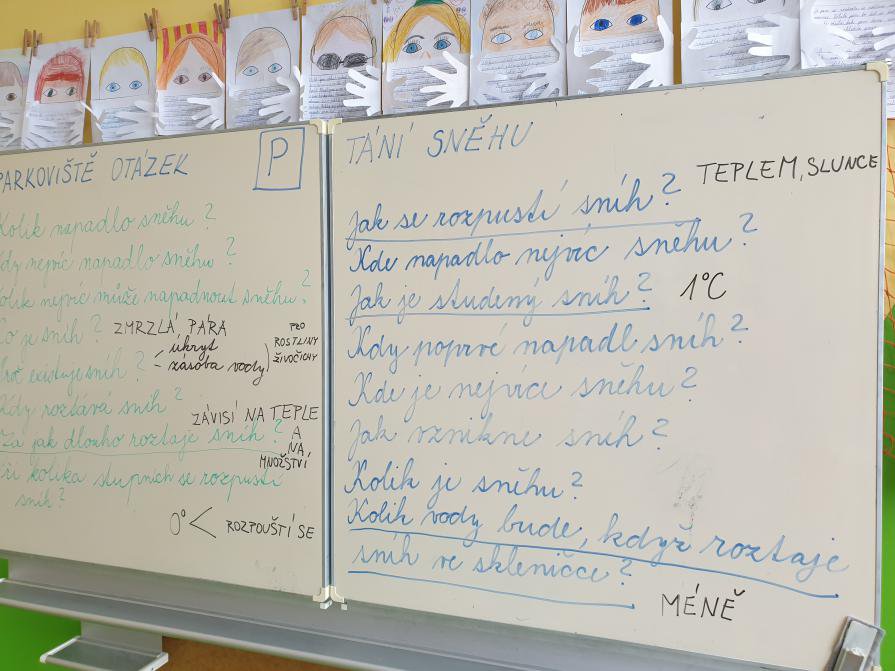 PARKOVIŠTĚ OTÁZEK
P
Kolik napadlo sněhu?
Kdy nejvíc napadlo sněhu?
Kolik nejvíc může napadnout sněhu?
Co je sníh? ZMRZLÁ PÁRA
Proč existuje sníh? - úkryt - zásoba vody PRO ROSTLINY ŽIVOČICHY
Kdy roztává sníh?
Za jak dlouho roztaje sníh? ZÁVISÍ NA TEPLE A NA MNOŽSTVÍ
Při kolika stupních se rozpustí
sníh?
0° < ROZPOUŠTÍ SE
TÁNÍ SNĚHU
Jak se rozpustí sníh? TEPLEM, SLUNCE
Kde napadlo nejvíc sněhu?
Jak je studený sníh? 1°C
Kdy poprvé napadl sníh?
Kde je nejvíce sněhu?
Jak vznikne sníh?
Kolik je sněhu?
Kolik vody bude, když roztaje
sníh ve skleničce?
MÉNĚ